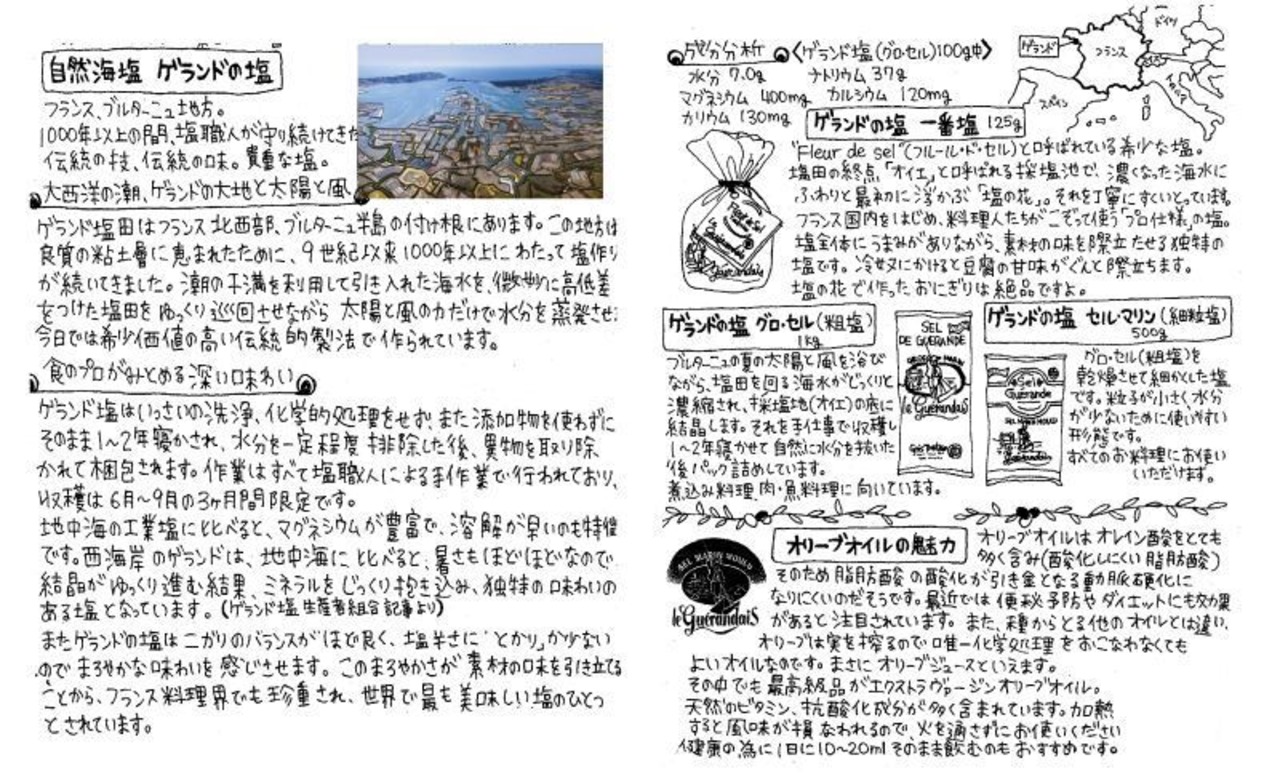 自然海塩 ゲランドの塩
フランス、ブルターニュ地方。
1000年以上の間、塩職人が守り続けてきた
伝統の技、伝統の味。貴重な塩。
大西洋の潮、ゲランドの大地と太陽と風
ゲランド塩田はフランス北西部、ブルターニュ半島の付け根にあります。この地方は
良質の粘土層に恵まれたために、9世紀以来1000年以上にわたって塩作り
が続いてきました。潮の干満を利用して引き入れた海水を、微妙に高低差
をつけた塩田をゆっくり巡回させながら 太陽と風の力だけで水分を蒸発させ
今日では希少価値の高い伝統的製法で作られています。
食のプロがみとめる深い味わい
ゲランド塩はいっさいの洗浄、化学的処理をせず、また添加物を使わずに
そのまま1〜2年寝かされ、水分を一定程度排除した後、異物を取り除
かれて梱包されます。作業はすべて塩職人による手作業で行われており、
収穫は6月〜9月の3ヶ月間限定です。
地中海の工業塩に比べると、マグネシウムが豊富で、溶解が早いのも特徴
です。西海岸のゲランドは、地中海に比べると、暑さもほどほどなので
結晶がゆっくり進む結果、ミネラルをじっくり抱き込み、独特の味わいの
ある塩となっています。(ゲランド塩生産者組合記事より)
またゲランドの塩はニガリのバランスがほど良く、塩辛さに「とがり」が少ない
のでまろやかな味わいを感じさせます。このまろやかさが素材の味を引き立てる
ことから、フランス料理界でも珍重され、世界で最も美味しい塩のひとつ
とされています。
成分分析 〈ゲランド塩(グロ・セル)100g中〉
水分 7.0g ナトリウム 37g
マグネシウム 400mg カルシウム 120mg
カリウム 130mg
ゲランド
フランス
ドイツ
スペイン
イタリア
ゲランドの塩 一番塩 125g
"Fleur de sel"(フルール・ド・セル)と呼ばれている希少な塩。
塩田の終点、「オイエ」と呼ばれる採塩池で、濃くなった海水に
ふわりと最初に浮かぶ「塩の花」。それを丁寧にすくいとっています。
フランス国内をはじめ、料理人たちがこぞって使う「プロ仕様」の塩。
塩全体にうまみがありながら、素材の味を際立たせる独特の
塩です。冷奴にかけると豆腐の甘味がぐんと際立ちます。
塩の花で作ったおにぎりは絶品ですよ。
Fleur de Sel
le Guérandais
ゲランドの塩 グロ・セル(粗塩)
1kg
ブルターニュの夏の太陽と風を浴び
ながら、塩田を回る海水がどっくりと
濃縮され、採塩地(オイエ)の底に
結晶します。それを手仕事で収穫し
1〜2年寝かせて自然に水分を抜いた
後パック詰めしています。
煮込み料理、肉・魚料理に向いています。
SEL
DE GUERANDE
le Guérandais
ゲランドの塩 セル・マリン(細粒塩)
500g
Sel de
Guérande
グロ・セル(粗塩)を
乾燥させて細かくした塩
です。粒子が小さく水分
が少ないために使いやすい
形態です。
すべてのお料理にお使い
いただけます。
SEL MARIN MOULU
le Guérandais
オリーブオイルの魅力
オリーブオイルはオレイン酸をとても
多く含み(酸化しにくい脂肪酸)
そのため脂肪酸の酸化が引き金となる動脈硬化に
なりにくいのだそうです。最近では便秘予防やダイエットにも効果
があると注目されています。また、種からとる他のオイルとは違い、
オリーブは実を搾るので唯一化学処理をおこなわなくても
よいオイルなのです。まさにオリーブジュースといえます。
その中でも最高級品がエクストラヴァージンオリーブオイル。
天然のビタミン、抗酸化成分が多く含まれています。加熱
すると風味が損なわれるので、火を通さずにお使いください
健康の為に1日に10〜20mlそのまま飲むのもおすすめです。